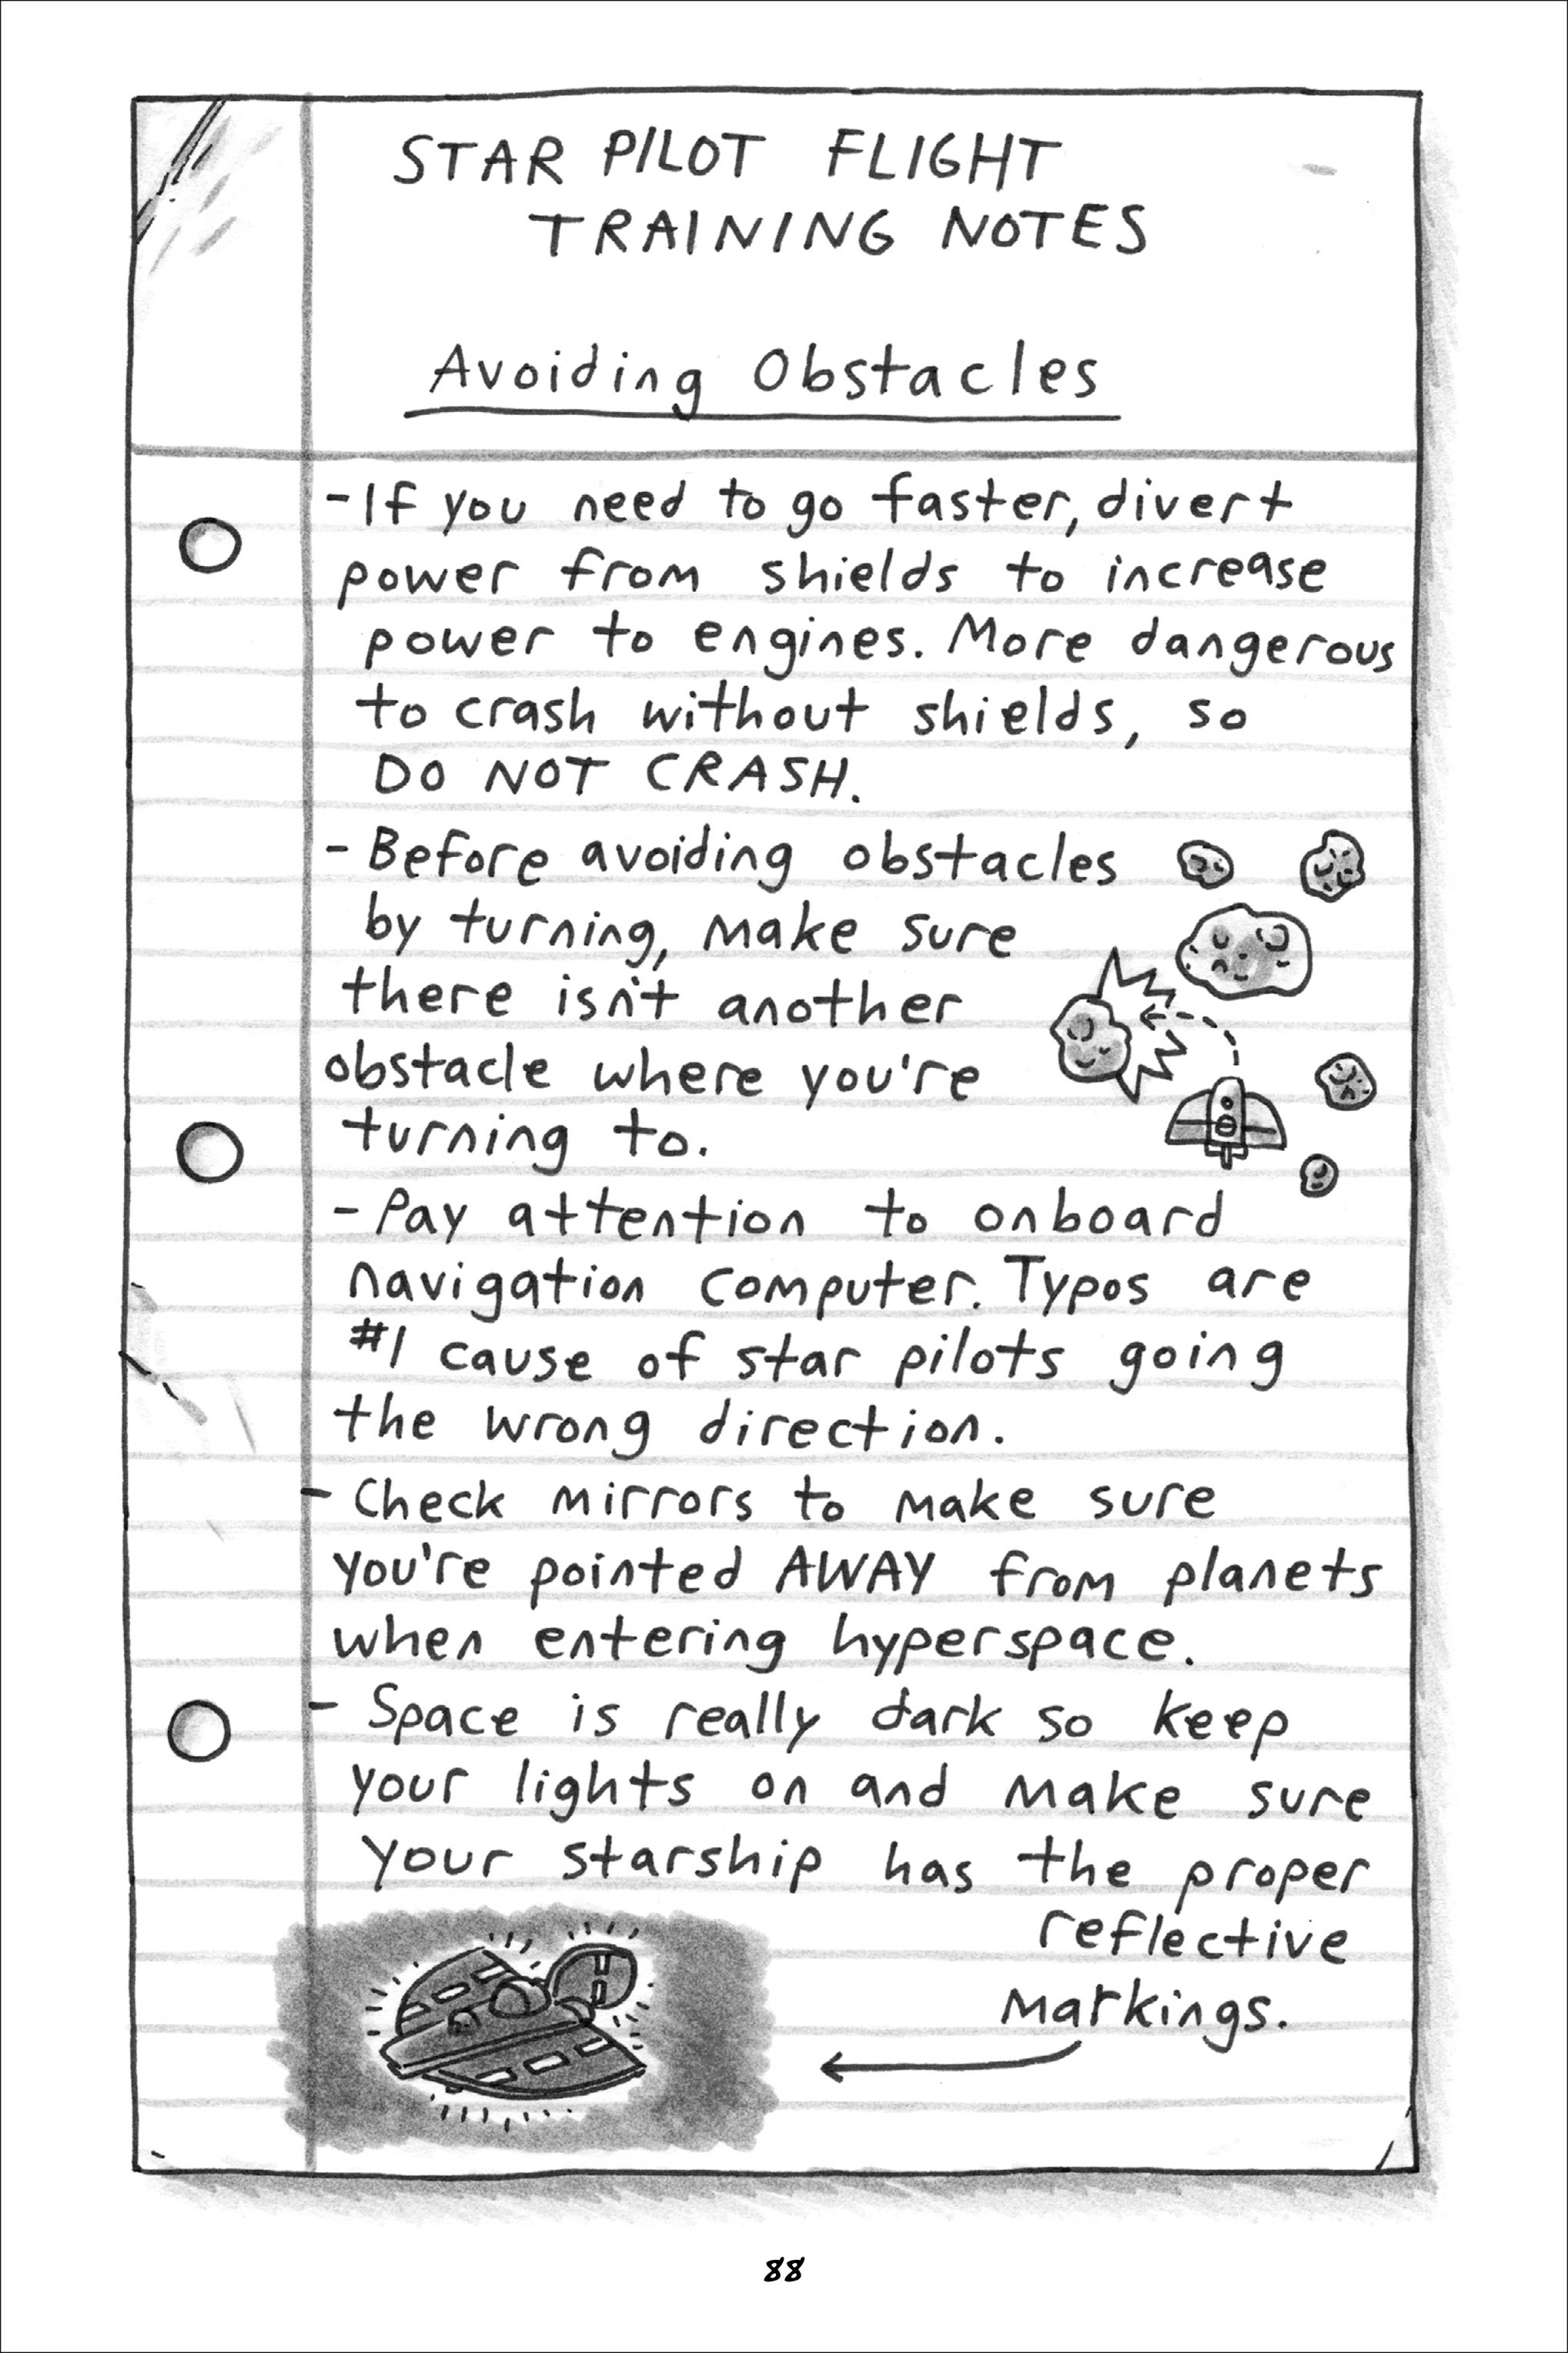 STAR PILOT FLIGHT
TRAINING NOTES
Avoiding Obstacles
-If you need to go faster, divert
power from shields to increase
power to engines. More dangerous
to crash without shields, so
DO NOT CRASH.
- Before avoiding obstacles
by turning, make sure
there isn't another
obstacle where you're
turning to.
- Pay attention to onboard
navigation computer. Typos are
#1 cause of star pilots going
the wrong direction.
- Check mirrors to make sure
you're pointed AWAY from planets
when entering hyperspace.
- Space is really dark so keep
your lights on and make sure
your starship has the proper
reflective
markings.
88